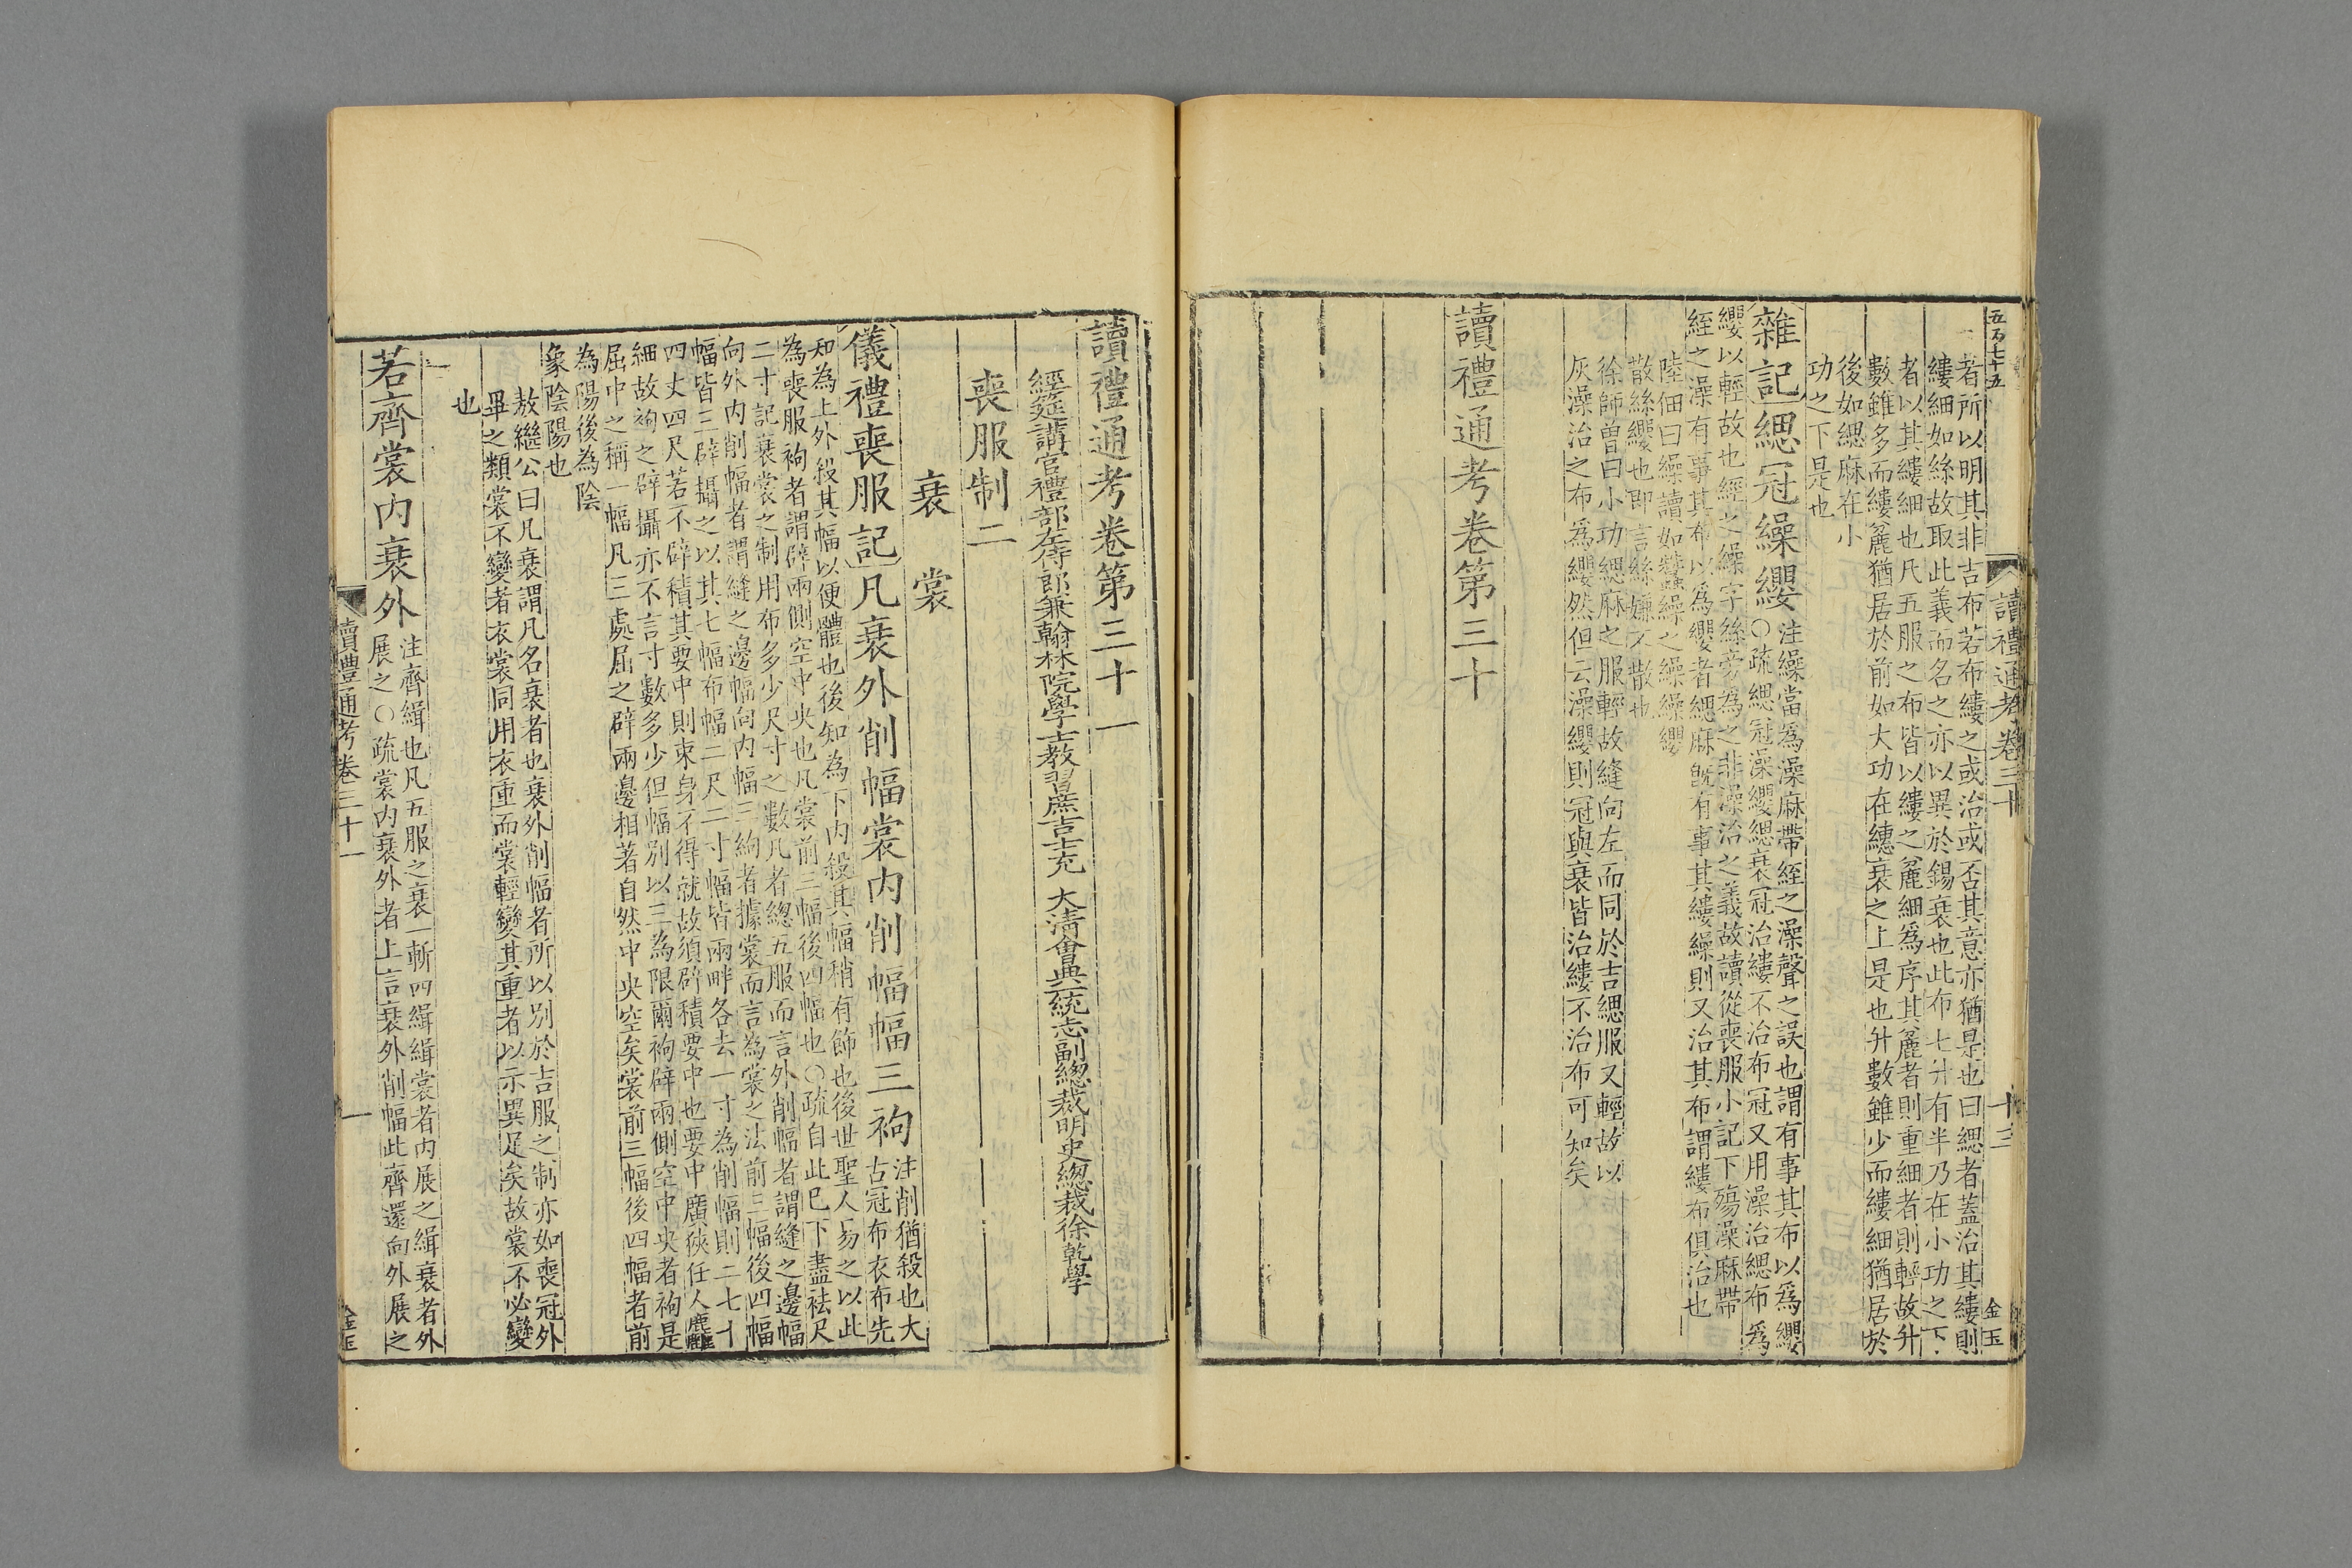 五万七十五
讀禮通考卷三十
十三
金玉
者所以明其非吉布若布縷之或治或否其意亦猶是也曰緦者蓋治其縷則
縷細如絲故取此義而名之亦以異於錫衰也此布七升有半乃在小功之下
者以其縷細也凡五服之布皆以縷之麄細爲序其麄者則重細者則輕故升
數雖多而縷麄猶居於前如大功在繐衰之上是也升數雖少而縷細猶居於
後如緦麻在小
功之下是也
雜記緦冠繰纓注繰當爲澡麻帶絰之澡聲之誤也謂有事其布以爲纓
○疏緦冠澡纓緦衰冠治縷不治布冠又用澡治緦布爲
纓以輕故也經之繰字絲旁為之非澡治之義故讀從喪服小記下殤澡麻帶
絰之澡有事其布以爲纓者緦麻旣有事其縷繰則又治其布謂縷布俱治也
陸佃曰繰讀如蠶繰之繰繰纓
散絲纓也即言絲嫌不散也
徐師曾曰小功緦麻之服輕故縫向左而同於吉緦服又輕故以
灰澡治之布爲纓然但云澡纓則冠與衰皆治縷不治布可知矣
讀禮通考卷第三十
讀禮通考卷第三十一
經筵講官禮部左侍郎兼翰林院學士教習庶吉士充 大淸會典一統志副總裁明史總裁徐乾學
喪服制二
衰 裳
儀禮喪服記凡衰外削幅裳内削幅幅三袧注削猶殺也大
古冠布衣布先
知為上外殺其幅以便體也後知為下内殺其幅稍有飾也後世聖人易之以此
為喪服袧者謂辟兩側空中央也凡裳前三幅後四幅也○疏自此已下盡袪尺
二寸記衰裳之制用布多少尺寸之數凡者總五服而言外削幅者謂縫之邊幅
向外内削幅者謂縫之邊幅向内幅三袧者據裳而言為裳之法前三幅後四幅
幅皆三辟攝之以其七幅布幅二尺二寸幅皆兩畔各去一寸為削幅則二七十
四丈四尺若不辟積其要中則束身不得就故須辟積要中也要中廣狹任人麤
細故袧之辟攝亦不言寸數多少但幅別以三為限爾袧辟兩側空中央者袧是
屈中之稱一幅凡三處屈之辟兩邊相著自然中央空矣裳前三幅後四幅者前
為陽後為陰
象陰陽也
敖繼公曰凡衰謂凡名衰者也衰外削幅者所以別於吉服之制亦如喪冠外
畢之類裳不變者衣裳同用衣重而裳輕變其重者以示異足矣故裳不必變
也
若齊裳内衰外注齊緝也凡五服之衰一斬四緝緝裳者内展之緝衰者外
展之○疏裳内衰外者上言衰外削幅此齊還向外展之
讀禮通考卷三十一
一
金玉